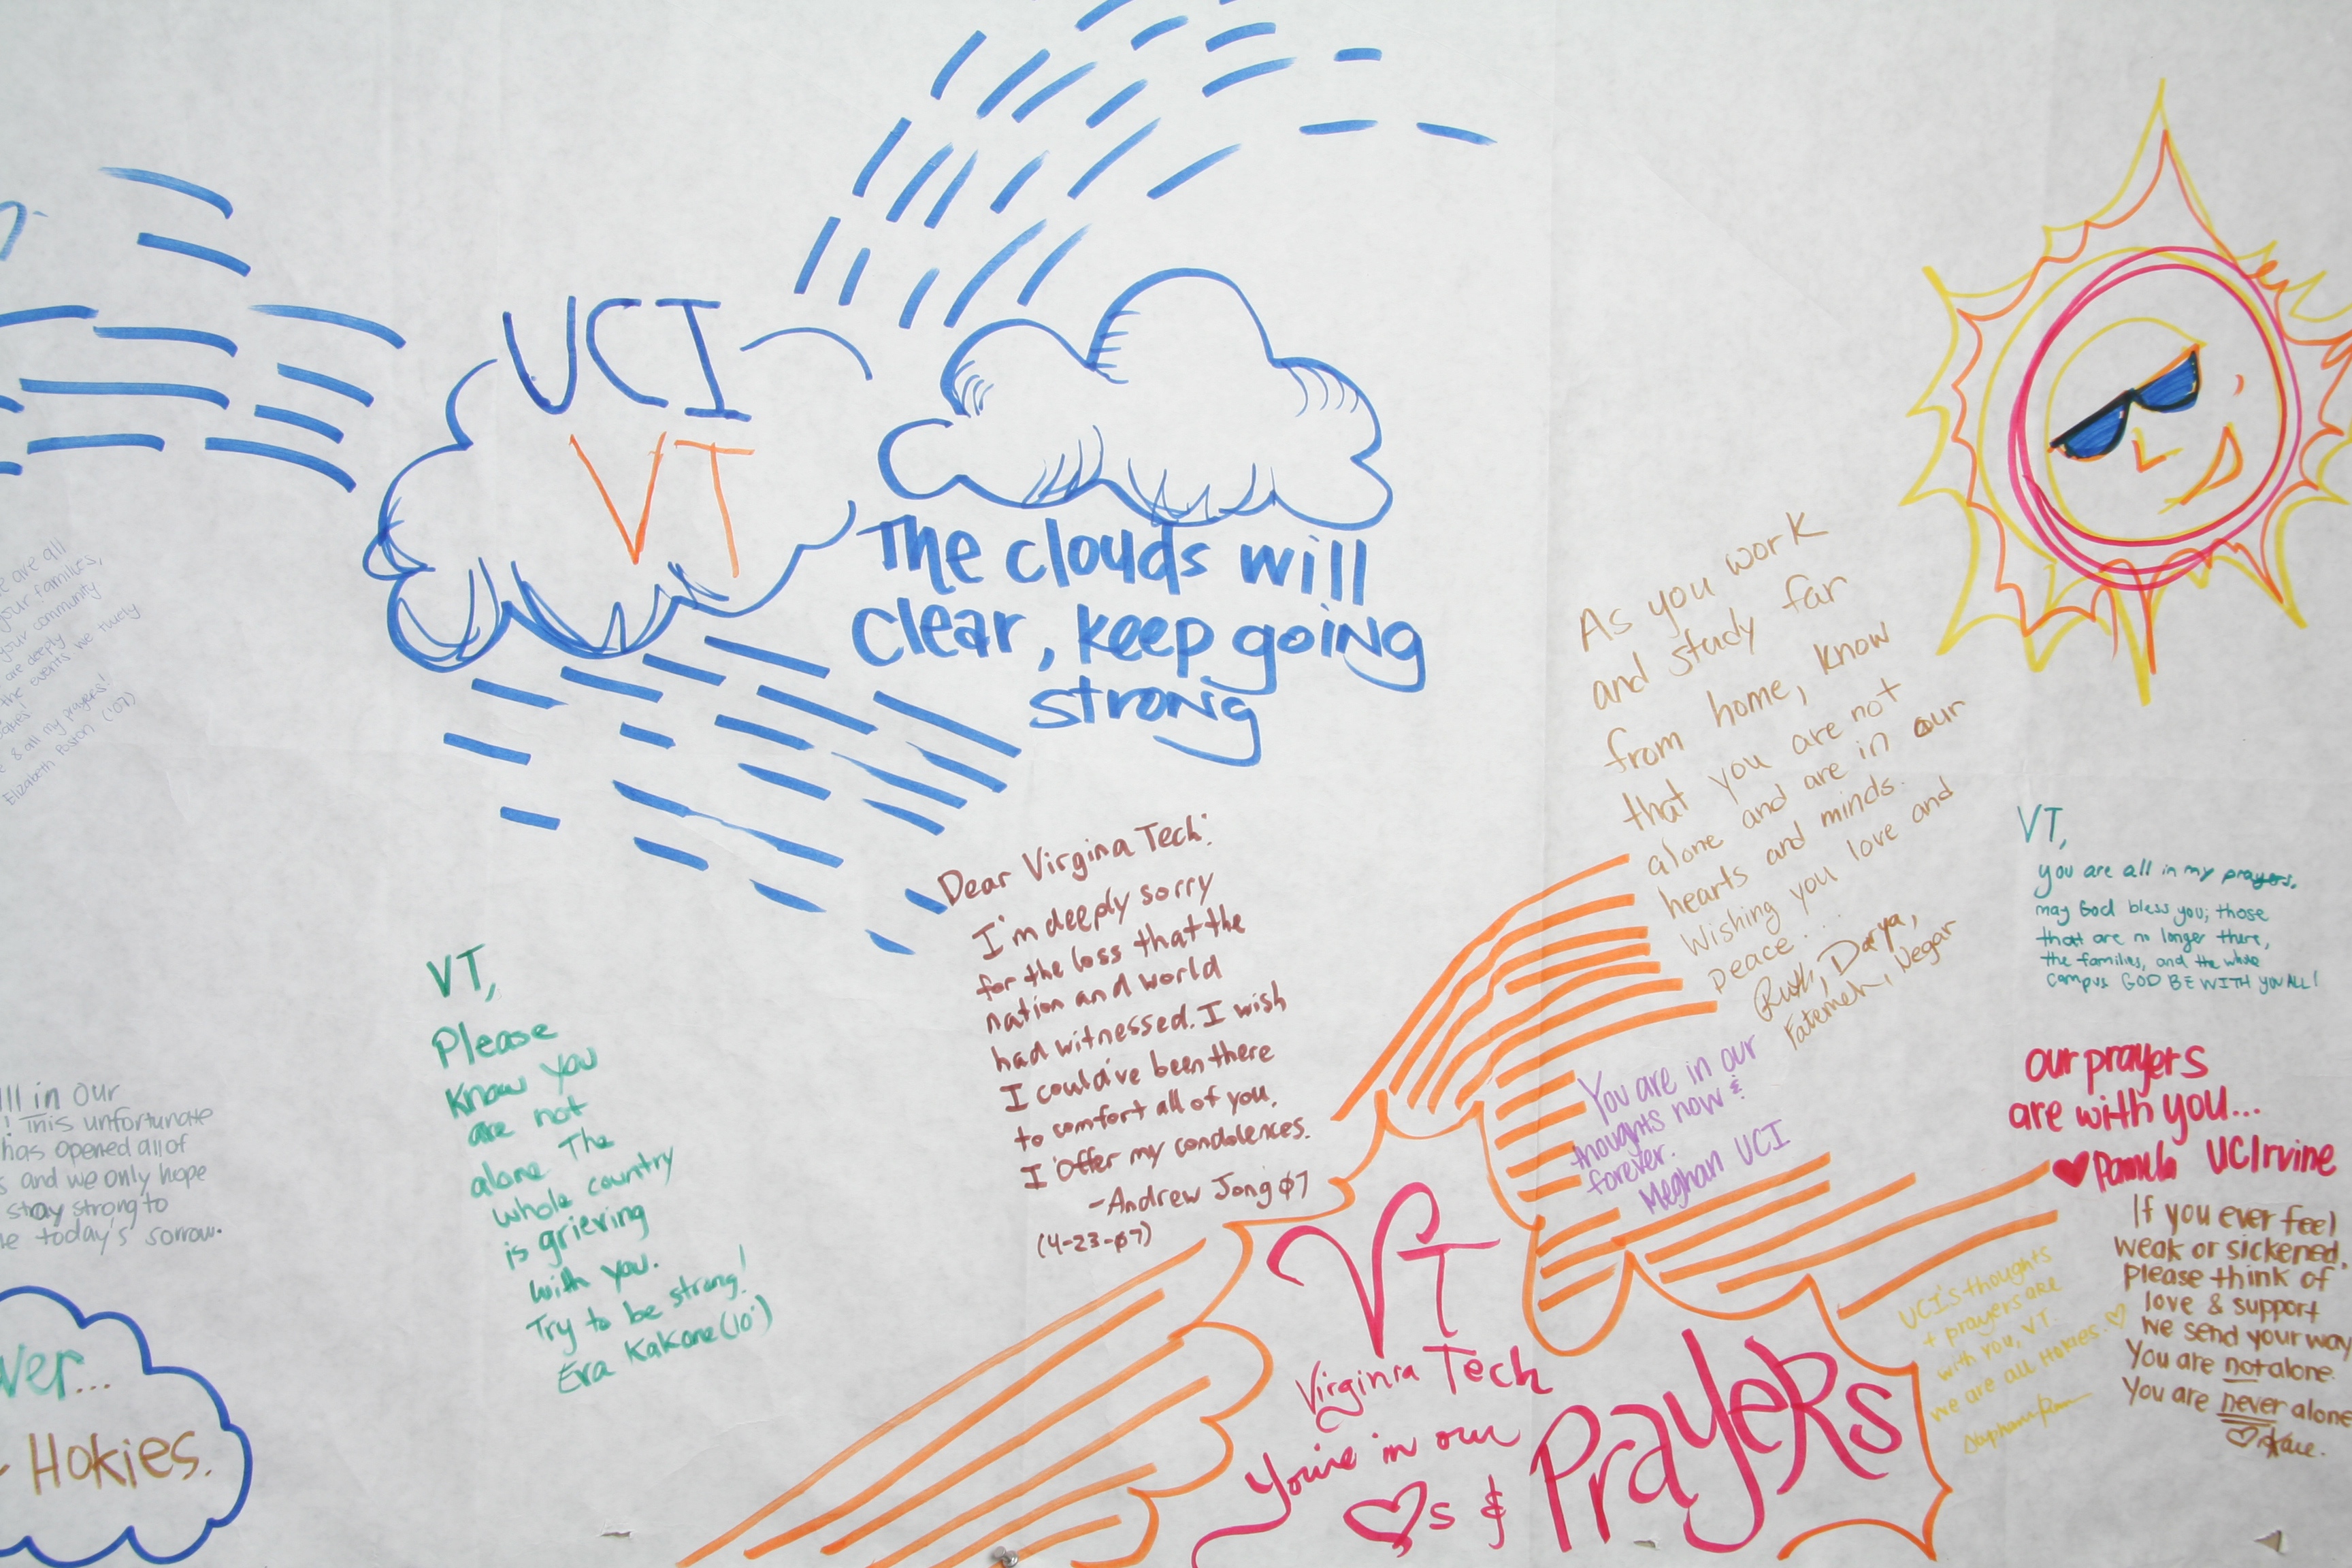 UCI
VT
The clouds will
clear, keep going
strong
e are all
your families,
your community
are deeply
the events we
e & all my prayers!
Elizabeth Poston ('07)
As you work
and study far
from home, know
that you are not
alone and are in our
hearts and minds.
Wishing you love and
peace...
Ruth, Darya,
Fatemeh, Negar
VT,
you are all in my prayers.
may God bless you; those
that are no longer there,
the families, and the whole
campus GOD BE WITH YOU ALL!
Dear Virgina Tech:
I'm deeply sorry
for the loss that the
nation and world
had witnessed. I wish
I could've been there
to comfort all of you.
I offer my condolences.
-Andrew Jong 07
(4-23-07)
VT,
Please
Know you
are not
alone The
whole country
is grieving
with you.
Try to be strong!
Era Kakone (10')
ll in our
! This unfortunate
has opened all of
s and we only hope
stay strong to
e today's sorrow.
ver...
Hokies.
You are in our
thoughts now &
forever.
Meghan UCI
our prayers
are with you...
♥ Pamela UCIrvine
If you ever feel
weak or sickened,
please think of
love & support
we send your way
You are not alone.
You are never alone
UCI's thoughts
+ prayers are
with you, VT.
we are all Hokies. ♡
VT
Virginia Tech
You're in our
♡s & Prayers